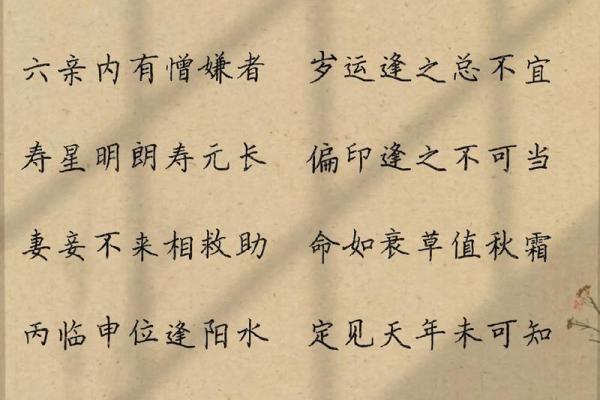 六亲内有憎嫌者 岁运逢之总不宜
寿星明朗寿元长 偏印逢之不可当
妻妾不来相救助 命如衰草值秋霜
丙临申位逢阳水 定见天年未可知